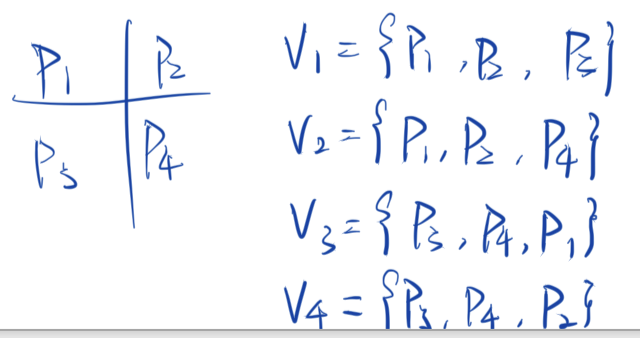 P1 P2
P3 P4
V1={P1,P2,P3}
V2={P1,P2,P4}
V3={P3,P4,P1}
V4={P3,P4,P2}